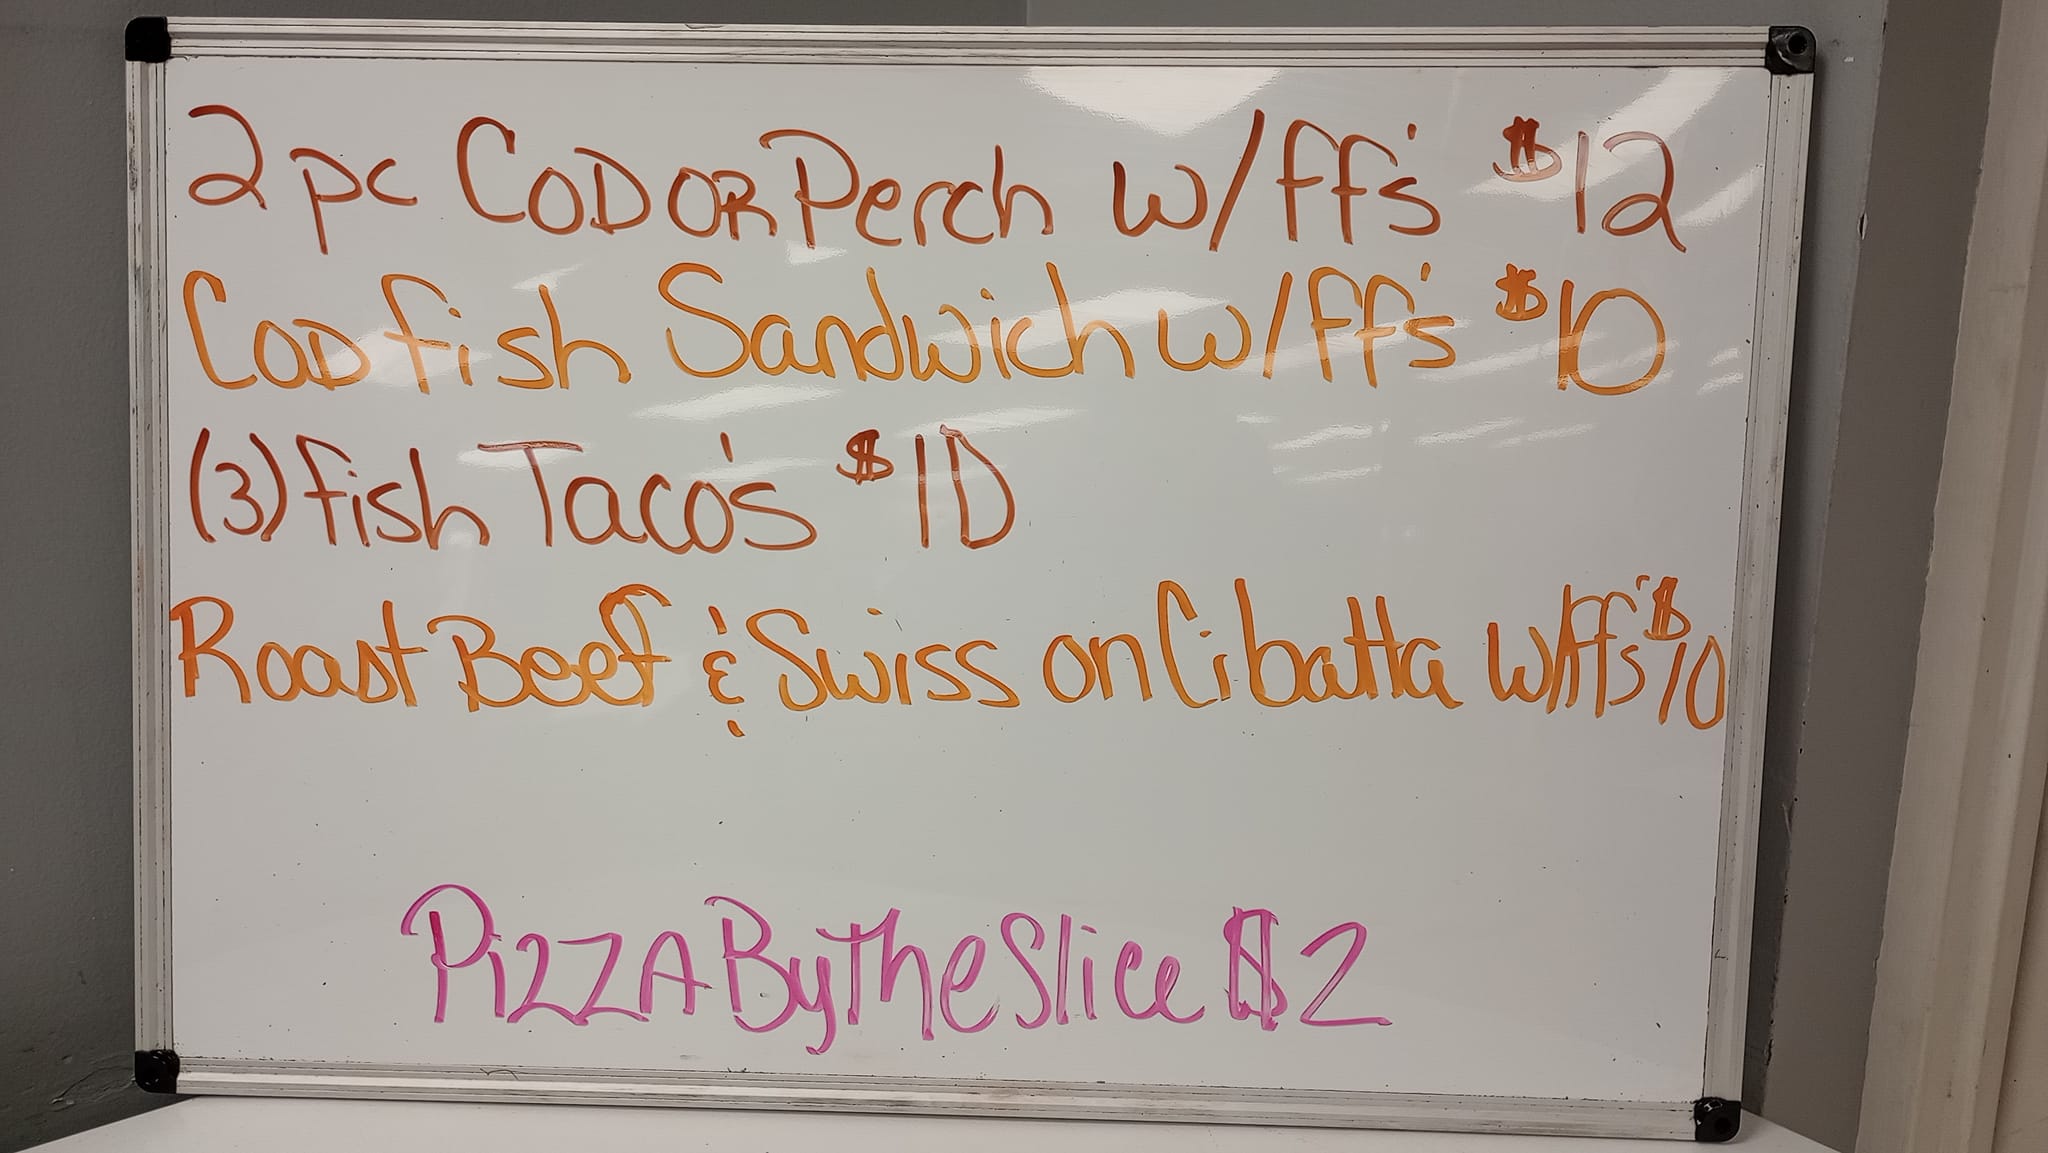 2 pc CODOR Perch w/ff's $12
Codfish Sandwich w/ff's $10
(3) fish Taco's $10
Roast Beef & Swiss on Cibatta w/ff's $10
Pizza By the Slice $2